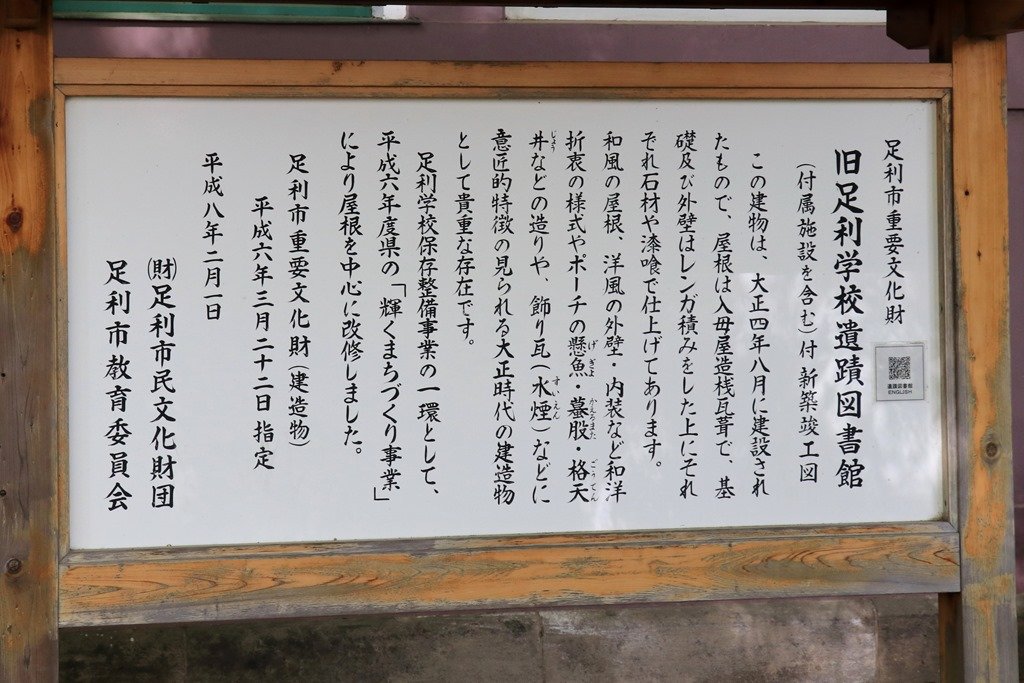 足利市重要文化財
旧足利学校遺蹟図書館
(付属施設を含む)付 新築竣工図
この建物は、大正四年八月に建設され
たもので、屋根は入母屋造桟瓦葺で、基
礎及び外壁はレンガ積みをした上にそれ
ぞれ石材や漆喰で仕上げてあります。
和風の屋根、洋風の外壁・内装など和洋
折衷の様式やポーチの懸魚・蟇股・格天
げぎょ かえるまた ごうてん
井などの造りや、飾り瓦(水煙)などに
じょう すいえん
意匠的特徴の見られる大正時代の建造物
として貴重な存在です。
足利学校保存整備事業の一環として、
平成六年度県の「輝くまちづくり事業」
により屋根を中心に改修しました。
足利市重要文化財(建造物)
平成六年三月二十二日指定
平成八年二月一日
(財)足利市民文化財団
足利市教育委員会
遺蹟図書館
ENGLISH